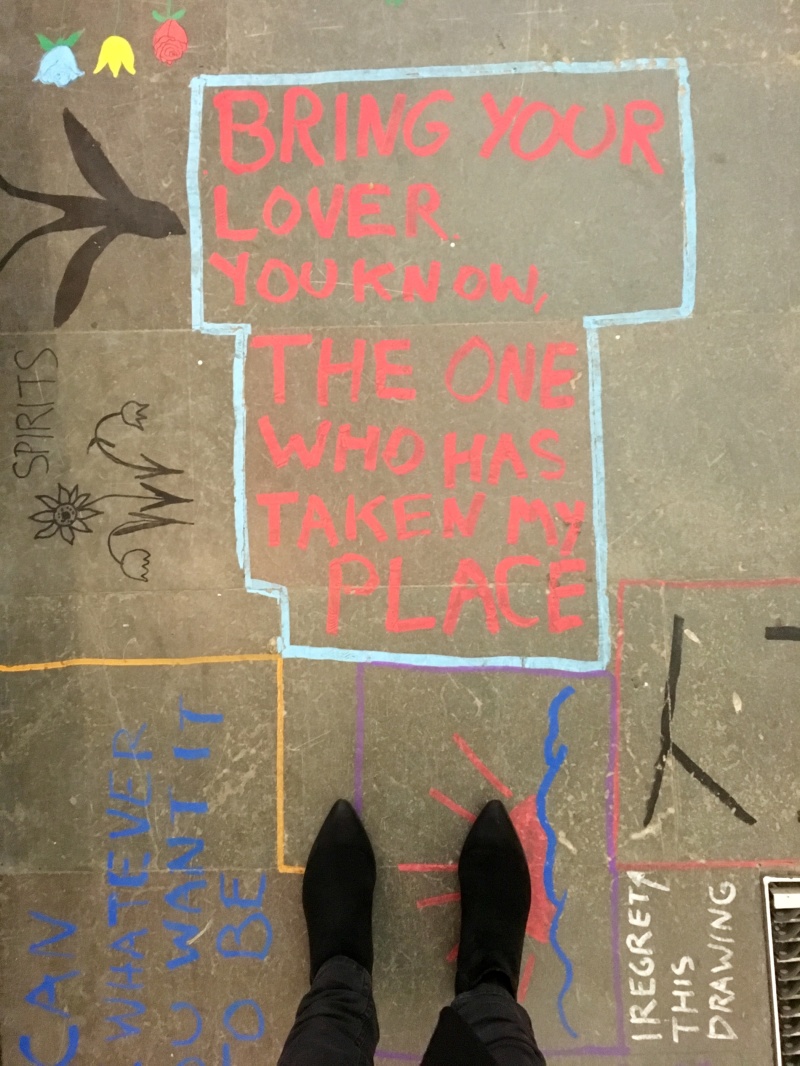 BRING YOUR
LOVER.
YOU KNOW,
THE ONE
WHO HAS
TAKEN MY
PLACE
SPIRITS
CAN
WHATEVER
WANT IT
TO BE
I REGRET
THIS
DRAWING